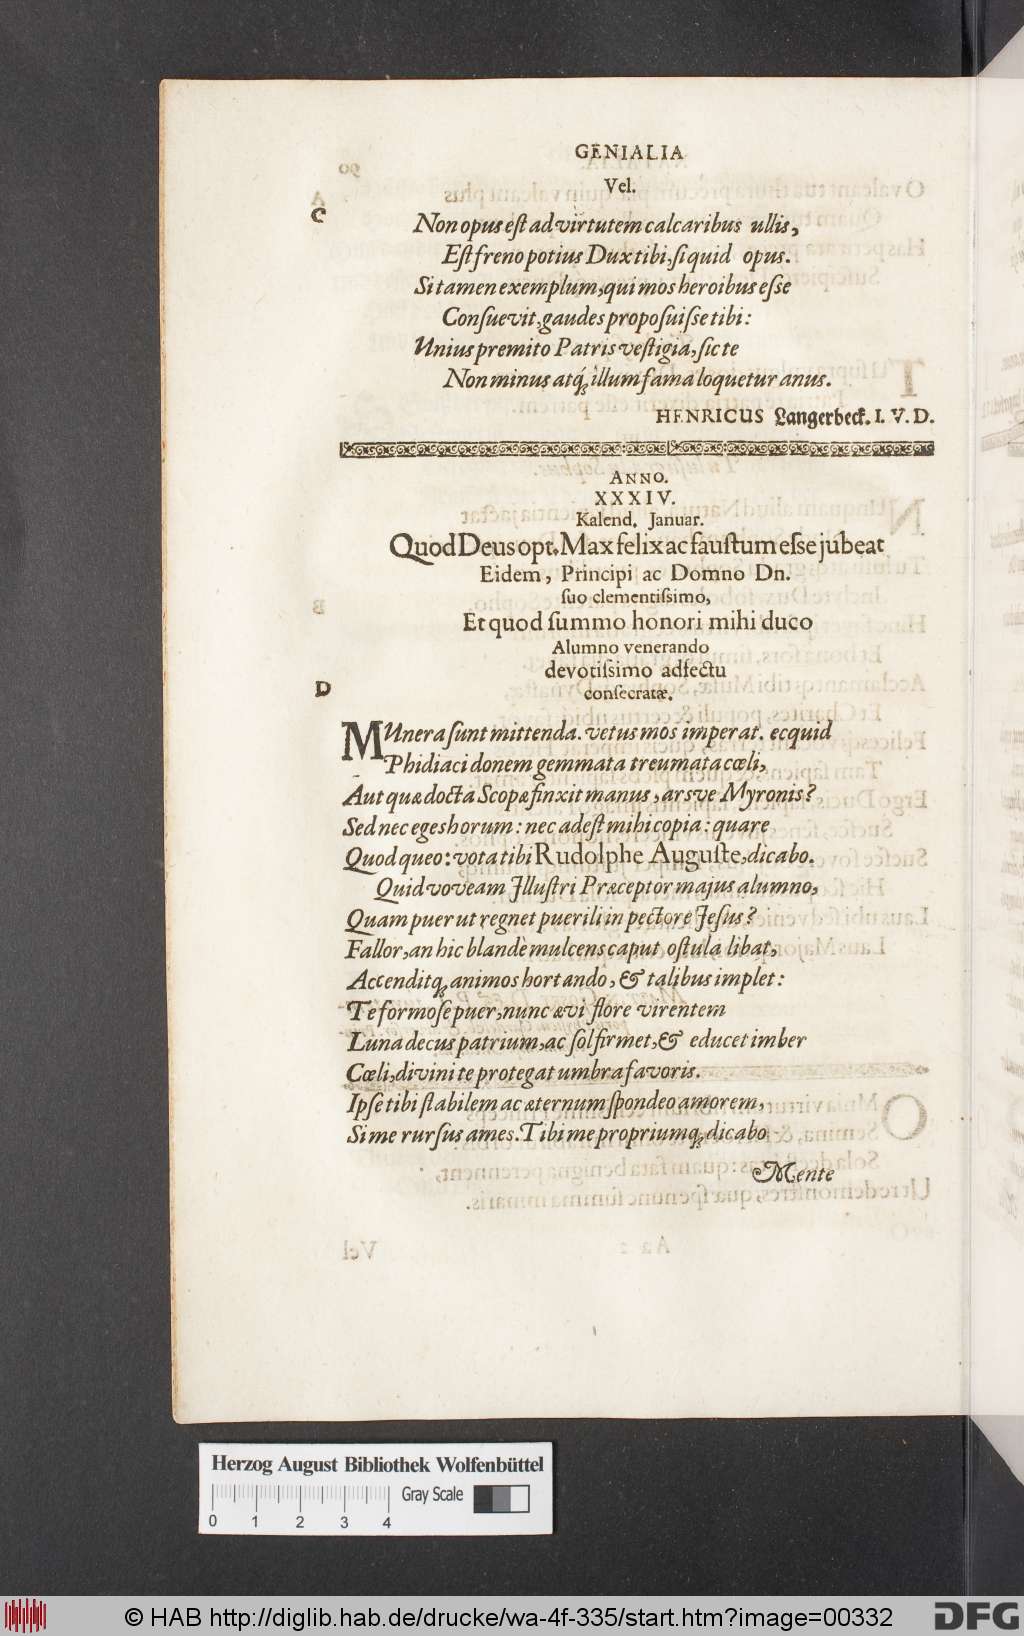 GENIALIA
Vel.
C
Non opus eſt ad virtutem calcaribus ullis,
Eſt freno potius Dux tibi, ſi quid opus.
Si tamen exemplum, qui mos heroibus eſse
Conſuevit, gaudes propoſuiſse tibi:
Unius premito Patris veſtigia, ſic te
Non minus atq́; illum fama loquetur anus.
HENRICUS Langerbeck. I. V. D.
ANNO.
XXXIV.
Kalend. Januar.
Quod Deus opt. Max felix ac fauſtum eſse jubeat
Eidem, Principi ac Domno Dn.
ſuo clementiſsimo,
Et quod ſummo honori mihi duco
Alumno venerando
devotiſsimo adfectu
D
conſecratæ.
MUnera ſunt mittenda. vetus mos imperat. ecquid
Phidiaci donem gemmata treumata cœli,
Aut quæ docta Scopæ finxit manus, arsve Myronis?
Sed nec eges horum: nec adeſt mihi copia: quare
Quod queo: vota tibi Rudolphe Auguſte, dicabo.
Quid voveam Illuſtri Præceptor majus alumno,
Quam puer ut regnet puerili in pectore Jeſus?
Fallor, an hic blandè mulcens caput oſtula libat,
Accenditq; animos hortando, & talibus implet:
Te formoſe puer, nunc ævi flore virentem
Luna decus patrium, ac ſol firmet, & educet imber
Cœli, divini te protegat umbra favoris.
Ipſe tibi ſtabilem ac æternum ſpondeo amorem,
Si me rurſus ames. Tibi me propriumq; dicabo
Mente
Herzog August Bibliothek Wolfenbüttel
Gray Scale
0 1 2 3 4
© HAB http://diglib.hab.de/drucke/wa-4f-335/start.htm?image=00332
DFG